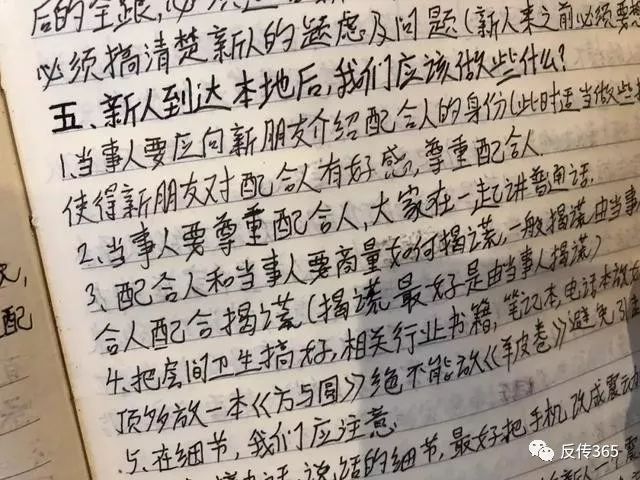 后的全跟,必须
必须搞清楚新人的疑虑及问题(新人来之前必须要
五、新人到达本地后,我们应该做些什么?
1.当事人要应向新朋友介绍配合人的身份(此时适当做些
使得新朋友对配合人有好感,尊重配合人
2、当事人要尊重配合人,大家在一起讲普通话.
3、配合人和当事人要商量如何揭谎,一般揭谎由当事人
合人配合揭谎(揭谎最好是由当事人揭谎)
4.把房间卫生搞好,相关行业书籍,笔记本,电话本放
顶多放一本《方与圆》绝不能放《羊皮卷》避免引
5、在细节,我们应注意
说话的细节,最好把手机改成震动
配
反传365